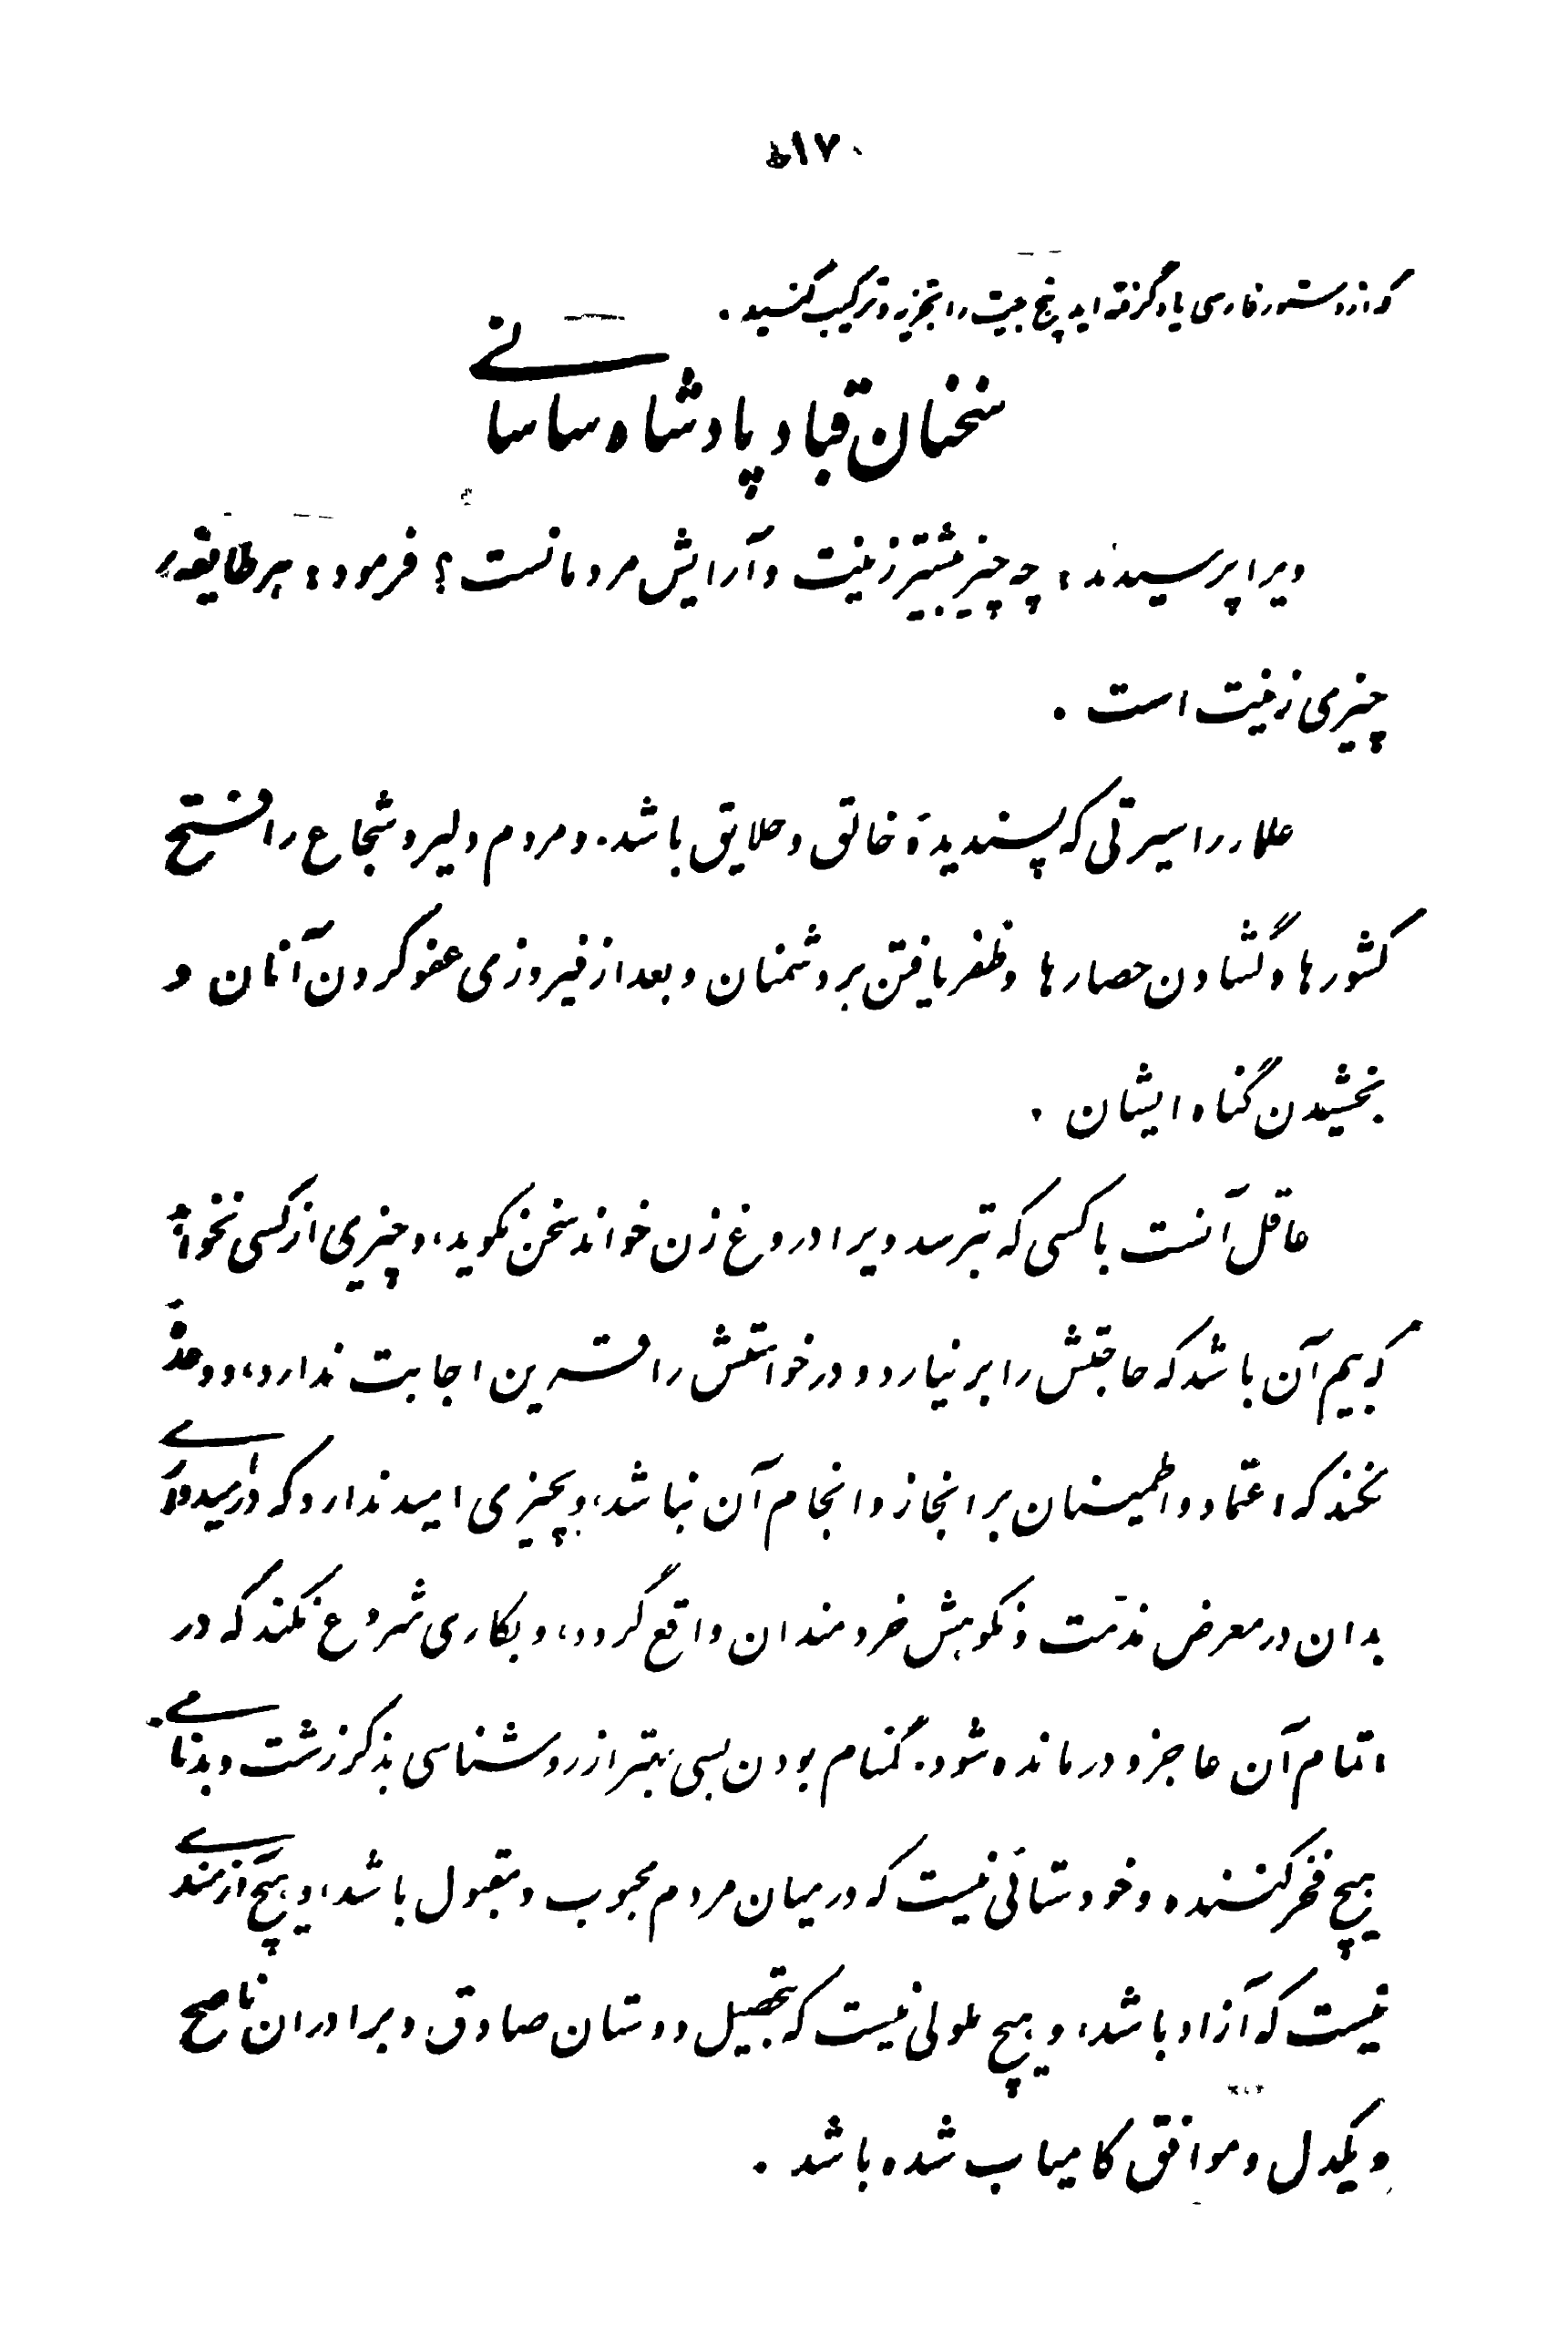 ۱۷۰
که از دستور فارسی یاد گرفته اید پنج بیت را تجزیه و ترکیب کنید.
سخنان قباد پادشاه ساسانی
ویرا پرسیدند: چه چیز بیشتر زینت و آرایش مردمانست؟ فرمود: هر طایفه را
چیزی زینت است.
علماء را سیرتی که پسندیدهٔ خالق و خلایق باشد. و مردم دلیر و شجاع را فتح
کشورها و گشادن حصارها و ظفر یافتن بر دشمنان و بعد از فیروزی عفو کردن آنان و
بخشیدن گناه ایشان.
عاقل آنست با کسی که تبرسد ویرا دروغ زن خواند سخن نگوید، و چیزی از کسی نخواهد
که بیم آن باشد که حاجتش را بر نیارد و درخواستش را قرین اجابت ندارد، و وعده
نکند که اعتماد و اطمینان بر انجاز و انجام آن نباشد، و بچیزی امید ندارد که امیدواری
بدان در معرض مذمّت و نکوهش خردمندان واقع گردد، و بکاری شروع نکند که در
اتمام آن عاجز و درمانده شود. گمنام بودن بسی بهتر از روشناسی بذکر زشت و بدنامی.
هیچ فخر کننده و خودستائی نیست که در میان مردم محبوب و مقبول باشد، و هیچ آزمندی
نیست که آزاد باشد، و هیچ ملولی نیست که بتحصیل دوستان صادق و برادران ناصح
و یکدل و موافق کامیاب شده باشد.